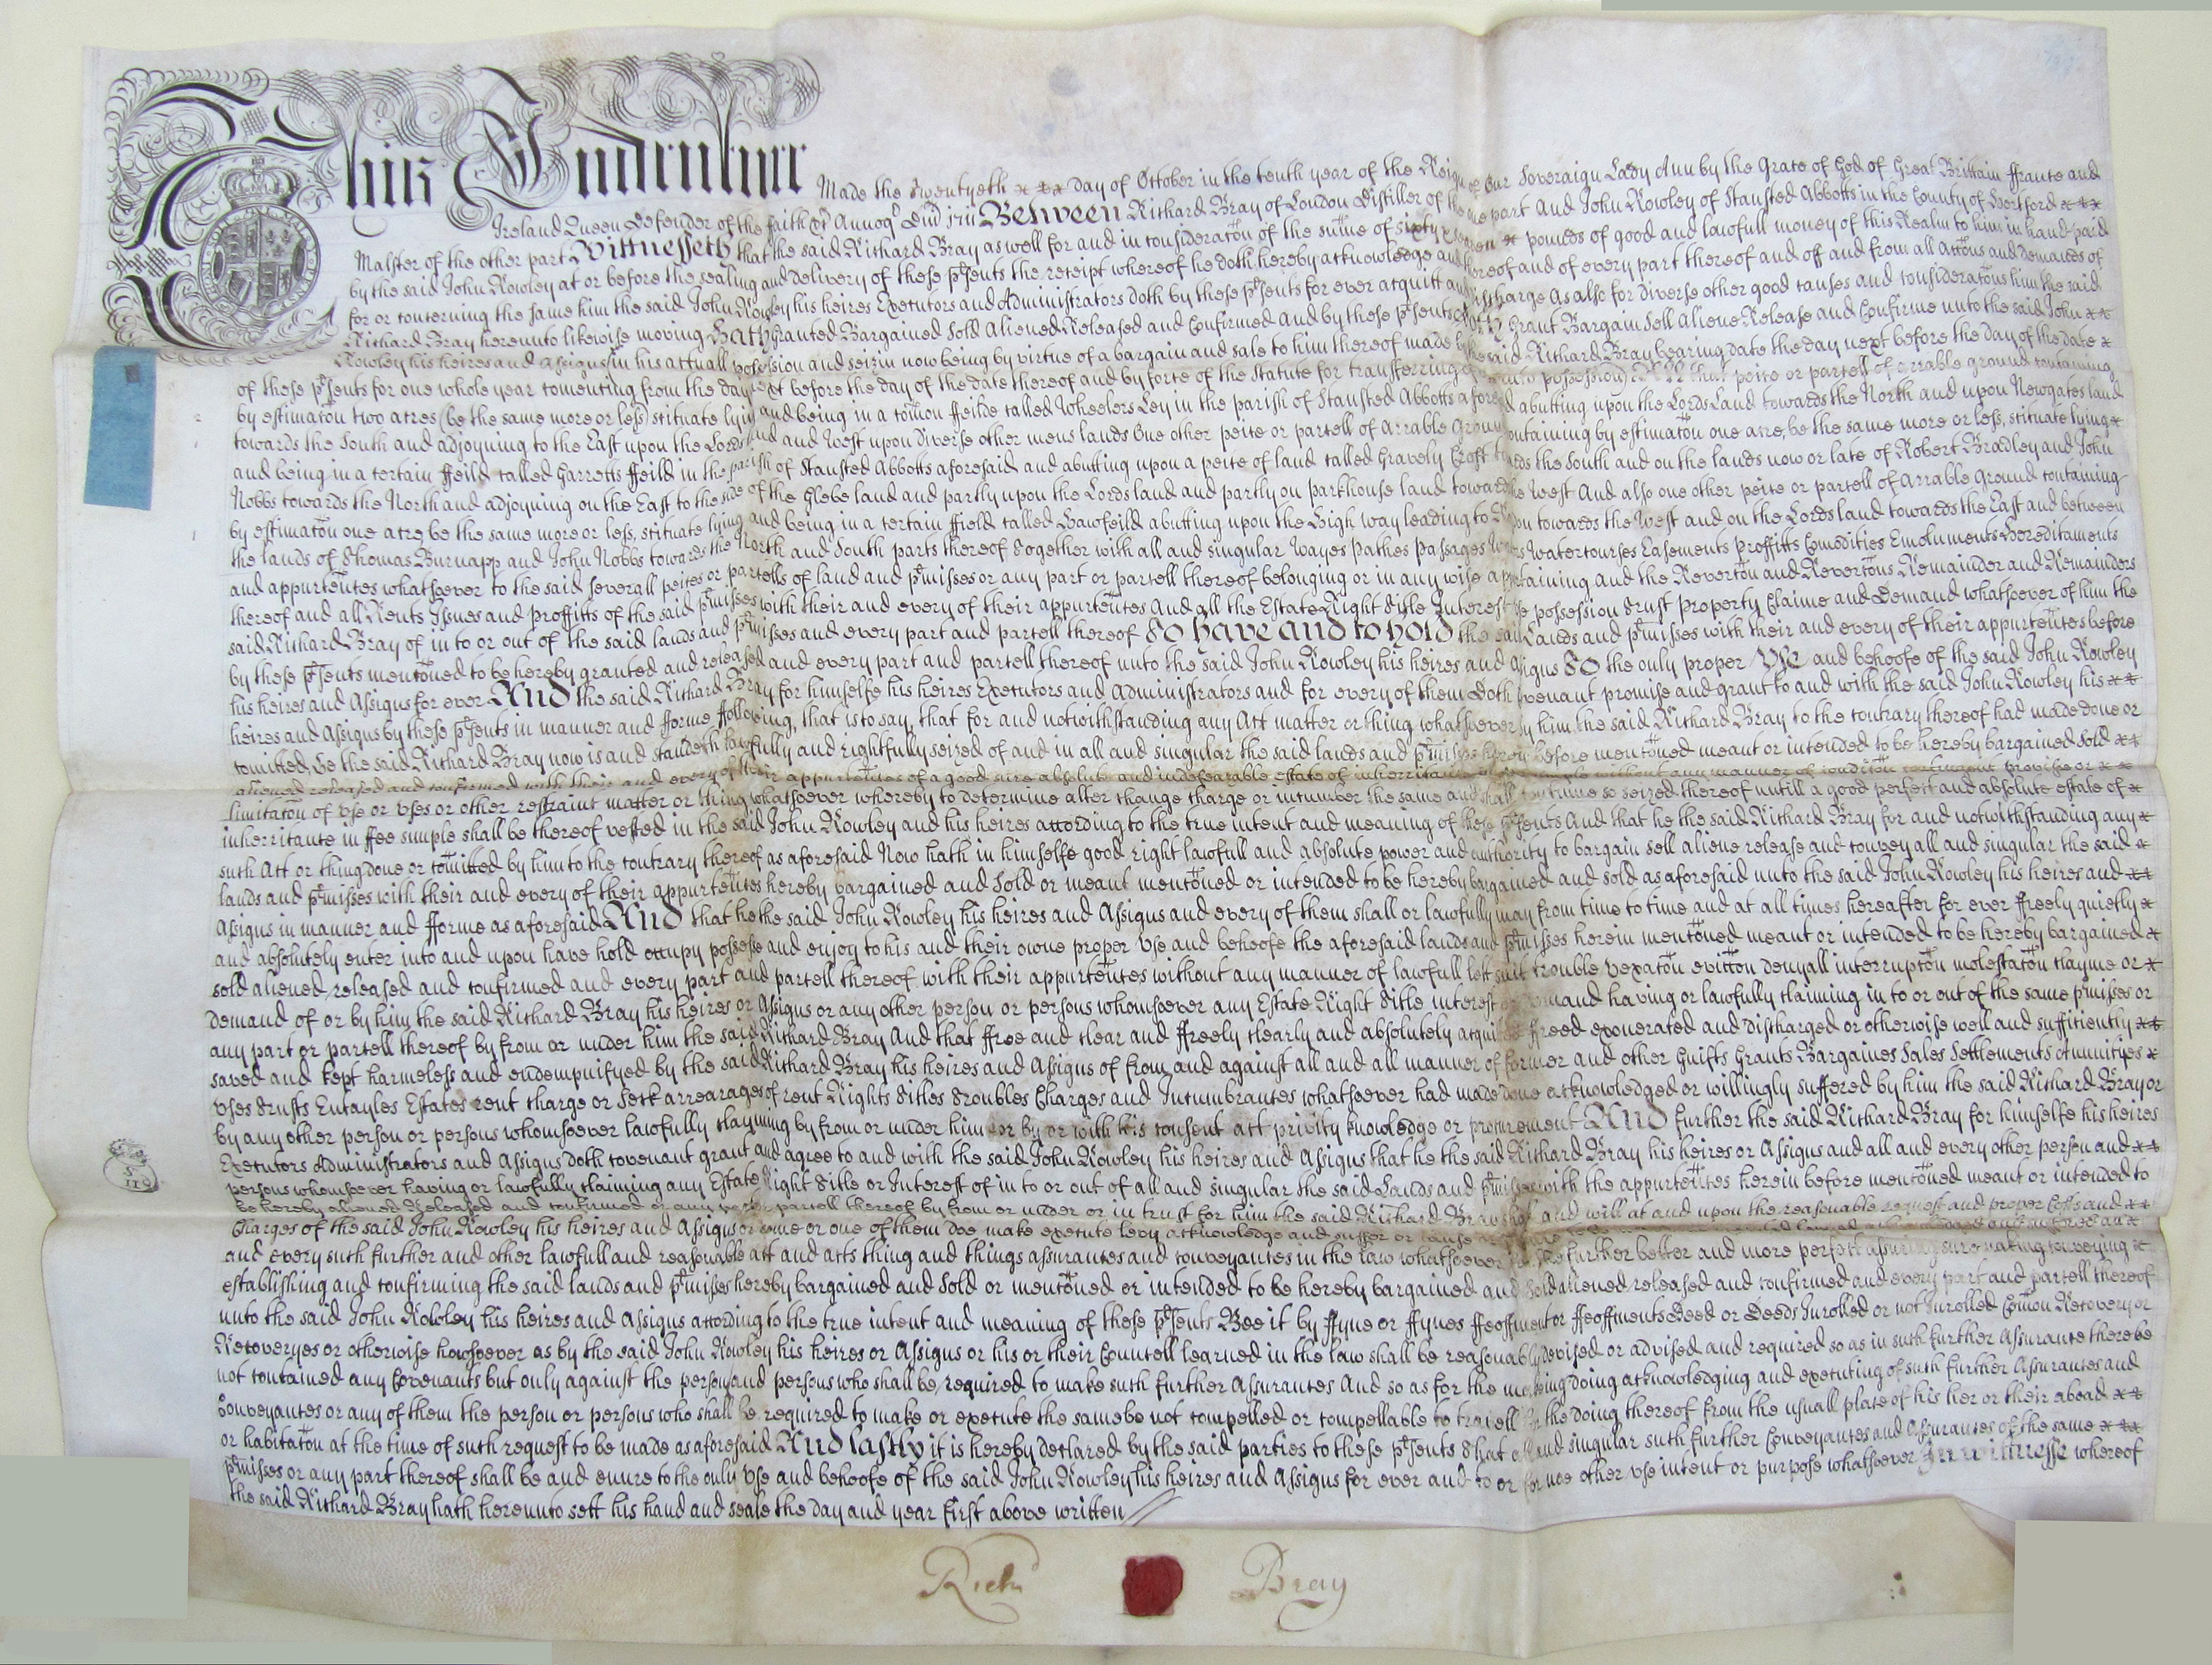 This Indenture Made the Twentyeth day of October in the tenth year of the Reign of our Soveraign Lady Ann by the Grace of God of Great Brittain ffrance and
Ireland Queen Defender of the faith &c Annoq Dni 1711 Between Richard Bray of London Distiller of the one part And John Rowley of Stansted Abbotts in the County of Hertford
Malster of the other part Wittnesseth that the said Richard Bray as well for and in consideratōn of the sume of sixty pounds of good and lawfull money of this Realm to him in hand paid
by the said John Rowley at or before the sealing and delivery of these p̄sents the receipt whereof he doth hereby acknowledge and thereof and of every part thereof and off and from all Actōns and demands of
for or concerning the same him the said John Rowley his heires Executors and Administrators doth by these p̄sents for ever acquitt and discharge As also for diverse other good causes and consideratōns him the said
Richard Bray hereunto likewise moving Hath Granted Bargained Sold Aliened Released and Confirmed And by these p̄sents doth Grant Bargain Sell Aliene Release and Confirme unto the said John
Rowley his heires and Assignes (in his actuall possession and seizin now being by virtue of a bargain and sale to him thereof made by the said Richard Bray bearing date the day next before the day of the date
of these p̄sents for one whole year comencing from the day next before the day of the date thereof and by force of the Statute for transferring of possession) All that peice or parcell of arrable ground containing
by estimatōn two acres (be the same more or less) scituate lying and being in a cōmon ffeilde called Wheelers Ley in the parish of Stansted Abbotts aforesaid abutting upon the Lords Land towards the North and upon Newgates land
towards the South and adjoyning to the East upon the Lords land and West upon diverse other mens lands One other peice or parcell of Arrable Ground containing by estimatōn one acre, be the same more or less, scituate lying
and being in a certain ffeild called Garretts ffeild in the parish of Stansted Abbotts aforesaid and abutting upon a peice of land called Gravely Croft towards the South and on the lands now or late of Robert Bradley and John
Nobbs towards the North and adjoyning on the East to the side of the Glebe land and partly upon the Lords land and partly on Parkhouse land towards the West And also one other peice or parcell of Arrable Ground containing
by estimatōn one acre be the same more or less, scituate lying and being in a certain ffield called Hawfeild abutting upon the High way leading to towards the West and on the Lords land towards the East and between
the lands of Thomas Burnapp and John Nobbs towards the North and South parts thereof Together with all and singular Wayes Pathes Passages Waters Watercourses Easements Proffitts Comodities Emoluments Hereditaments
and appurtēnces whatsoever to the said severall peices or parcells of land and p̄misses or any part or parcell thereof belonging or in any wise appertaining and the Revertōn and Revertōns Remainder and Remainders
thereof and all Rents Issues and proffitts of the said p̄misses with their and every of their appurtēnces And all the Estate Right Title Interest Use possession Trust property Claime and Demand whatsoever of him the
said Richard Bray of in to or out of the said lands and p̄misses and every part and parcell thereof To have and to hold the said Lands and p̄misses with their and every of their appurtēnces before
by these p̄sents mentōned to be hereby granted and released and every part and parcell thereof unto the said John Rowley his heires and Assigns To the only proper Use and behoofe of the said John Rowley
his heires and Assigns for ever And the said Richard Bray for himselfe his heires Executors and Administrators and for every of them Doth Covenant promise and grant to and with the said John Rowley his
heires and Assigns by these p̄sents in manner and fforme ffollowing, that is to say, that for and notwithstanding any Act matter or thing whatsoever by him the said Richard Bray to the contrary thereof had made done or
cōmitted, he the said Richard Bray now is and standeth lawfully and rightfully seized of and in all and singular the said lands and p̄misses herein before mentōned meant or intended to be hereby bargained sold
aliened released and confirmed with their and every of their appurtēnces of a good sure absolute and indefeazable estate of inherritance without any manner of conditōn contingent provisoe or
limitatōn of Use or Uses or other restraint matter or thing whatsoever whereby to determine alter change charge or incumber the same and shall continue so seized thereof untill a good perfect and absolute estate of
inherritance in ffee simple shall be thereof vested in the said John Rowley and his heires according to the true intent and meaning of these p̄sents And that he the said Richard Bray for and notwithstanding any
such Act or thing done or cōmitted by him to the contrary thereof as aforesaid Now hath in himselfe good right lawfull and absolute power and authority to bargain sell aliene release and convey all and singular the said
lands and p̄misses with their and every of their appurtēnces hereby bargained and Sold or meant mentōned or intended to be hereby bargained and sold as aforesaid unto the said John Rowley his heires and
Assigns in manner and fforme as aforesaid And that he the said John Rowley his heires and Assigns and every of them shall or lawfully may from time to time and at all times hereafter for ever ffreely quietly
and absolutely enter into and upon have hold occupy possesse and enjoy to his and their owne proper Use and behoofe the aforesaid lands and p̄misses herein mentōned meant or intended to be hereby bargained
sold aliened released and confirmed and every part and parcell thereof with their appurtēnces without any manner of lawfull lett suit trouble vexatōn evictōn denyall interruptōn molestatōn clayme or
demand of or by him the said Richard Bray his heires or Assigns or any other person or persons whomsoever any Estate Right Title interest or demand having or lawfully claiming in to or out of the same p̄misses or
any part or parcell thereof by from or under him the said Richard Bray And that ffree and clear and ffreely clearly and absolutely acquitted ffreed exonerated and discharged or otherwise well and sufficiently
saved and kept harmeless and endempnifyed by the said Richard Bray his heires and Assigns of from and against all and all manner of former and other Guifts Grants Bargaines Sales Settlements Annuityes
Uses Trusts Entayles Estates rent charge or Seck arrearages of rent Rights Titles Troubles Charges and Incumbrances whatsoever had made done acknowledged or willingly suffered by him the said Richard Bray or
by any other person or persons whomsoever lawfully clayming by from or under him or by or with his consent act privity knowledge or procurement And further the said Richard Bray for himselfe his heires
Executors Administrators and Assigns doth covenant grant and agree to and with the said John Rowley his heires and Assigns that he the said Richard Bray his heires or Assigns and all and every other person and
persons whomsoever having or lawfully claiming any Estate Right Title or Interest of in to or out of all and singular the said Lands and p̄misses with the appurtēnces herein before mentōned meant or intended to
be hereby aliened Released and confirmed or any part or parcell thereof by from or under or in trust for him the said Richard Bray shall and will at and upon the reasonable request and proper Costs and
Charges of the said John Rowley his heires and Assigns or some or one of them doe make execute levy acknowledge and suffer or cause
and every such further and other lawfull and reasonable act and acts thing and things assurances and conveyances in the law whatsoever for the further better and more perfect assuring sure making conveying
establishing and confirming the said lands and p̄misses hereby bargained and Sold or mentōned or intended to be hereby bargained and Sold aliened released and confirmed and every part and parcell thereof
unto the said John Rowley his heires and Assigns according to the true intent and meaning of these p̄sents Bee it by ffyne or ffynes ffeoffment or ffeoffments Deed or Deeds Inrolled or not Inrolled Cōmon Recovery or
Recoveryes or otherwise howsoever as by the said John Rowley his heires or Assigns or his or their Councell learned in the law shall be reasonably devised or advised and required so as in such further Assurance there be
not contained any Covenants but only against the person and persons who shall be required to make such further Assurances And so as for the making doing acknowledging and executing of such further Assurances and
Conveyances or any of them the person or persons who shall be required to make or execute the same be not compelled or compellable to travell for the doing thereof from the usuall place of his her or their aboad
or habitatōn at the time of such request to be made as aforesaid And lastly it is hereby declared by the said parties to these p̄sents That all and singular such further Conveyances and Assurances of the same
p̄misses or any part thereof shall be and enure to the only Use and behoofe of the said John Rowley his heires and Assigns for ever and to or for noe other Use intent or purpose whatsoever In wittnesse whereof
the said Richard Bray hath hereunto sett his hand and seale the day and year first above written
Rich Bray